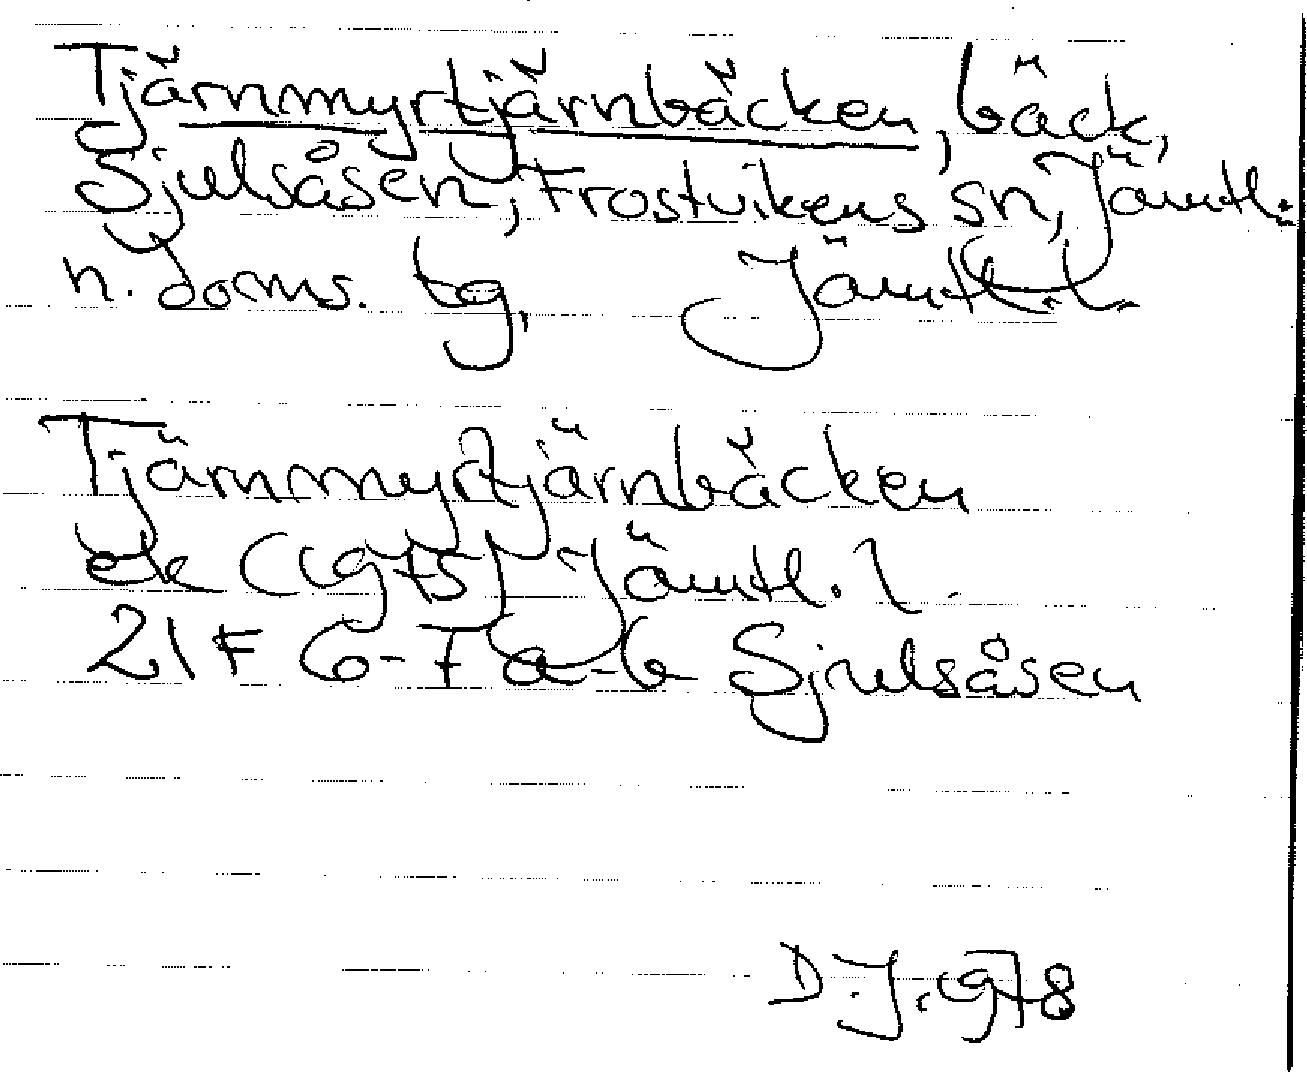 Tjärnmyrtjärnbäcken, bäck,
Sjulsåsen, Frostvikens sn, Jämtl:
n. doms. tg, Jämtl. l.
Tjärnmyrtjärnbäcken
ek (1975) Jämtl. l.
21F 6-7 a-b Sjulsåsen
D.J. 1978